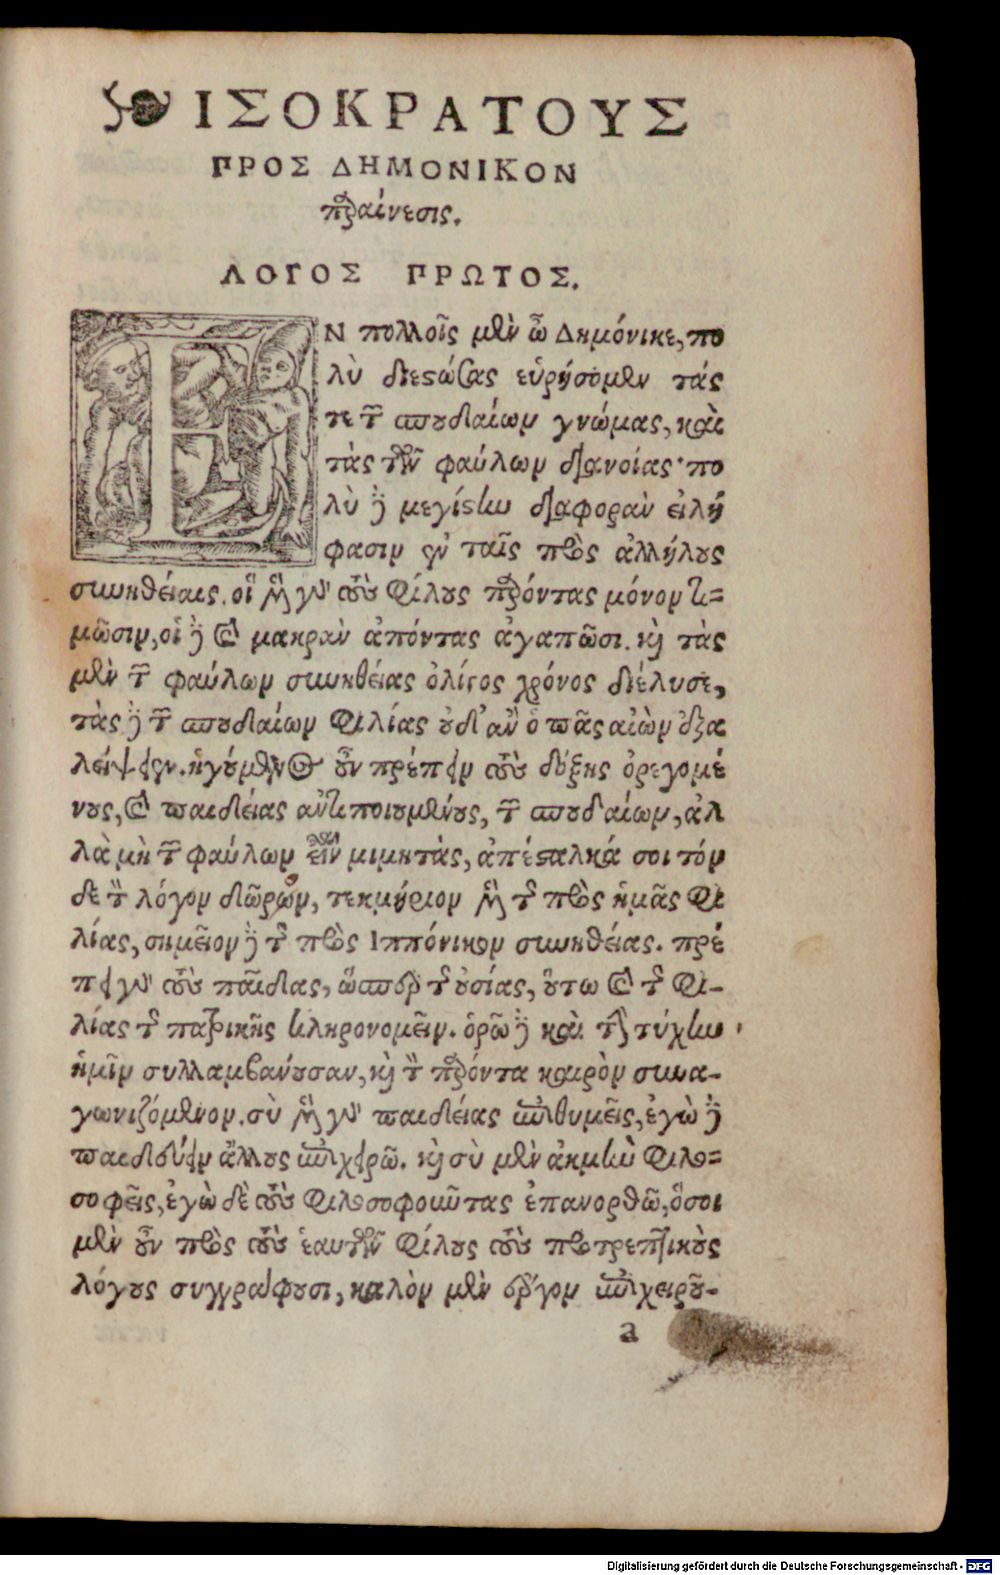 ΙΣΟΚΡΑΤΟΥΣ
ΠΡΟΣ ΔΗΜΟΝΙΚΟΝ
παραίνεσις.
ΛΟΓΟΣ ΠΡΩΤΟΣ.
ΕΝ πολλοῖς μὲν ὦ Δημόνικε, πο
λὺ διεστώσας εὑρήσομεν τάς
τε τῶν σπουδαίων γνώμας, καὶ
τὰς τῶν φαύλων διανοίας· πο
λὺ δὲ μεγίστην διαφορὰν εἰλή
φασιν ἐν ταῖς πρὸς ἀλλήλους
συνηθείαις. οἱ μὲν γὰρ τοὺς φίλους παρόντας μόνον τι=
μῶσιν, οἱ δὲ καὶ μακρὰν ἀπόντας ἀγαπῶσι. καὶ τὰς
μὲν τῶν φαύλων συνηθείας ὀλίγος χρόνος διέλυσε,
τὰς δὲ τῶν σπουδαίων φιλίας οὐδ' ἂν ὁ πᾶς αἰὼν ἐξα
λείψειεν. ἡγούμενος οὖν πρέπειν τοὺς δόξης ὀρεγομέ
νους, καὶ παιδείας ἀντιποιουμένους, τῶν σπουδαίων, ἀλ
λὰ μὴ τῶν φαύλων εἶναι μιμητὰς, ἀπέσταλκά σοι τόν
δε τὸν λόγον δῶρον, τεκμήριον μὲν τῆς πρὸς ἡμᾶς φι
λίας, σημεῖον δὲ τῆς πρὸς Ἱππόνικον συνηθείας. πρέ
πει γὰρ τοὺς παῖδας, ὥσπερ τῆς οὐσίας, οὕτω καὶ τῆς φι-
λίας τῆς πατρικῆς κληρονομεῖν. ὁρῶ δὲ καὶ τὴν τύχην
ἡμῖν συλλαμβάνουσαν, καὶ τὸν παρόντα καιρὸν συνα-
γωνιζόμενον. σὺ μὲν γὰρ παιδείας ἐπιθυμεῖς, ἐγὼ δὲ
παιδεύειν ἄλλους ἐπιχειρῶ. καὶ σὺ μὲν ἀκμὴν φιλο=
σοφεῖς, ἐγὼ δὲ τοὺς φιλοσοφοῦντας ἐπανορθῶ, ὅσοι
μὲν οὖν πρὸς τοὺς ἑαυτῶν φίλους τοὺς προτρεπτικοὺς
λόγους συγγράφουσι, καλὸν μὲν ἔργον ἐπιχειροῦ-
a
Digitalisierung gefördert durch die Deutsche Forschungsgemeinschaft - DFG